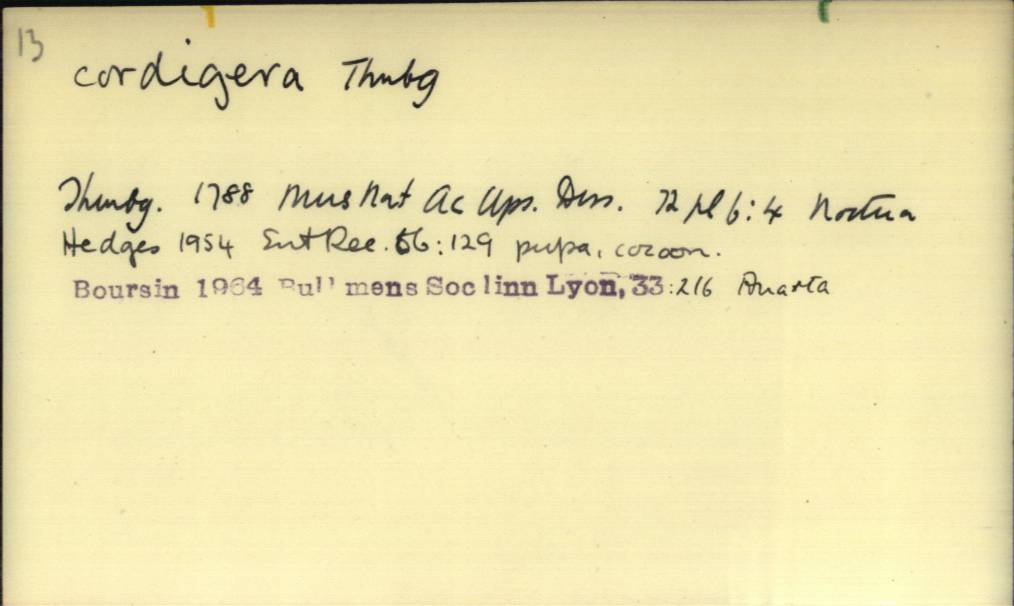 13
cordigera Thnbg
Thunbg. 1788 Mus Nat Ac Ups. Diss. 72 pl 6:4 Noctua
Hedges 1954 Ent Rec. 66:129 pupa, cocoon.
Boursin 1964 Bull mens Soc linn Lyon, 33:216 Anarta